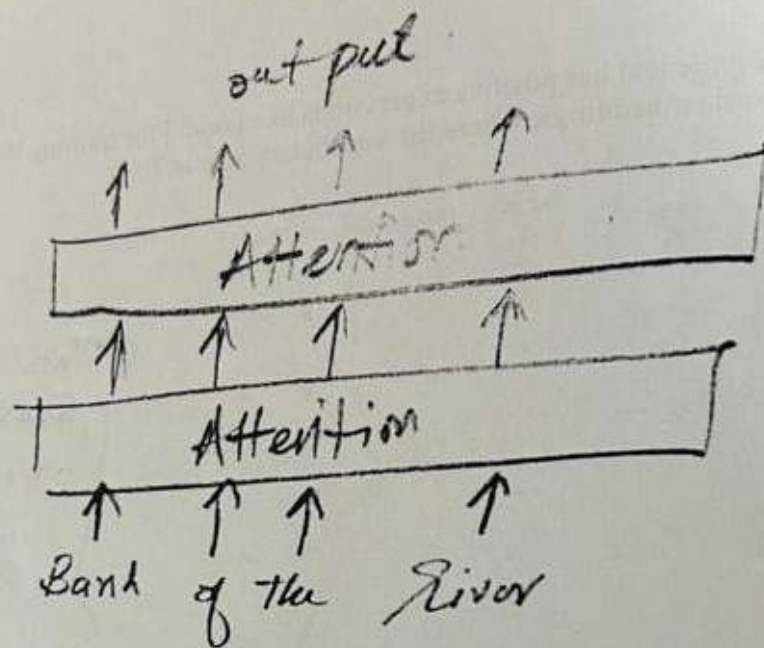 output
Attention
Attention
Bank of the River